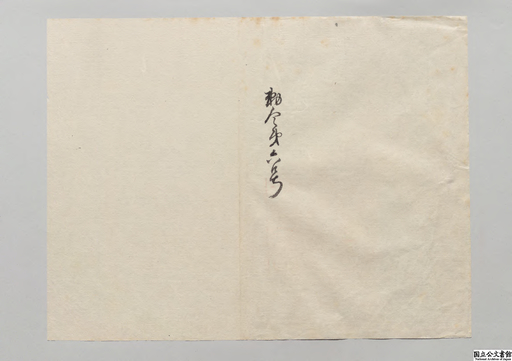 勅令第六号
国立公文書館
National Archives of Japan